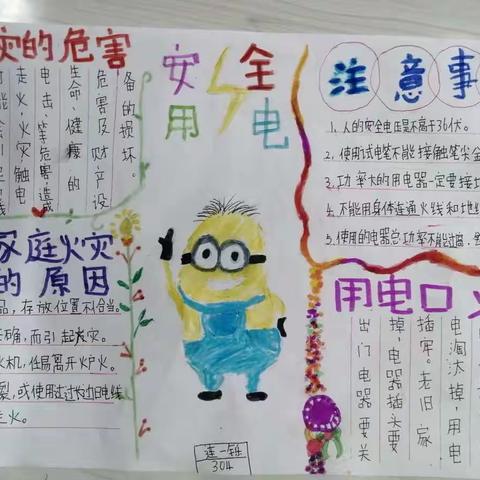 灾的危害
备的损坏。
危害及财产设
生命、健康的
电击,等危害,造成
走火,火灾触电
安全
用电
注意事
1、人的安全电压是不高于36伏。
2、使用试电笔不能接触笔尖金
3、功率大的用电器一定要接地
4、不能用身体连通火线和地线
5、使用的电器总功率不能过高,
家庭火灾
的原因
品,存放位置不恰当。
正确,而引起火灾。
火机,任易离开炉火。
裂,或使用过过长旧电线
生火。
用电口
电淘汰掉,用电
插牢。老旧家
掉,电器插头要
出门电器要关
连一铄
304